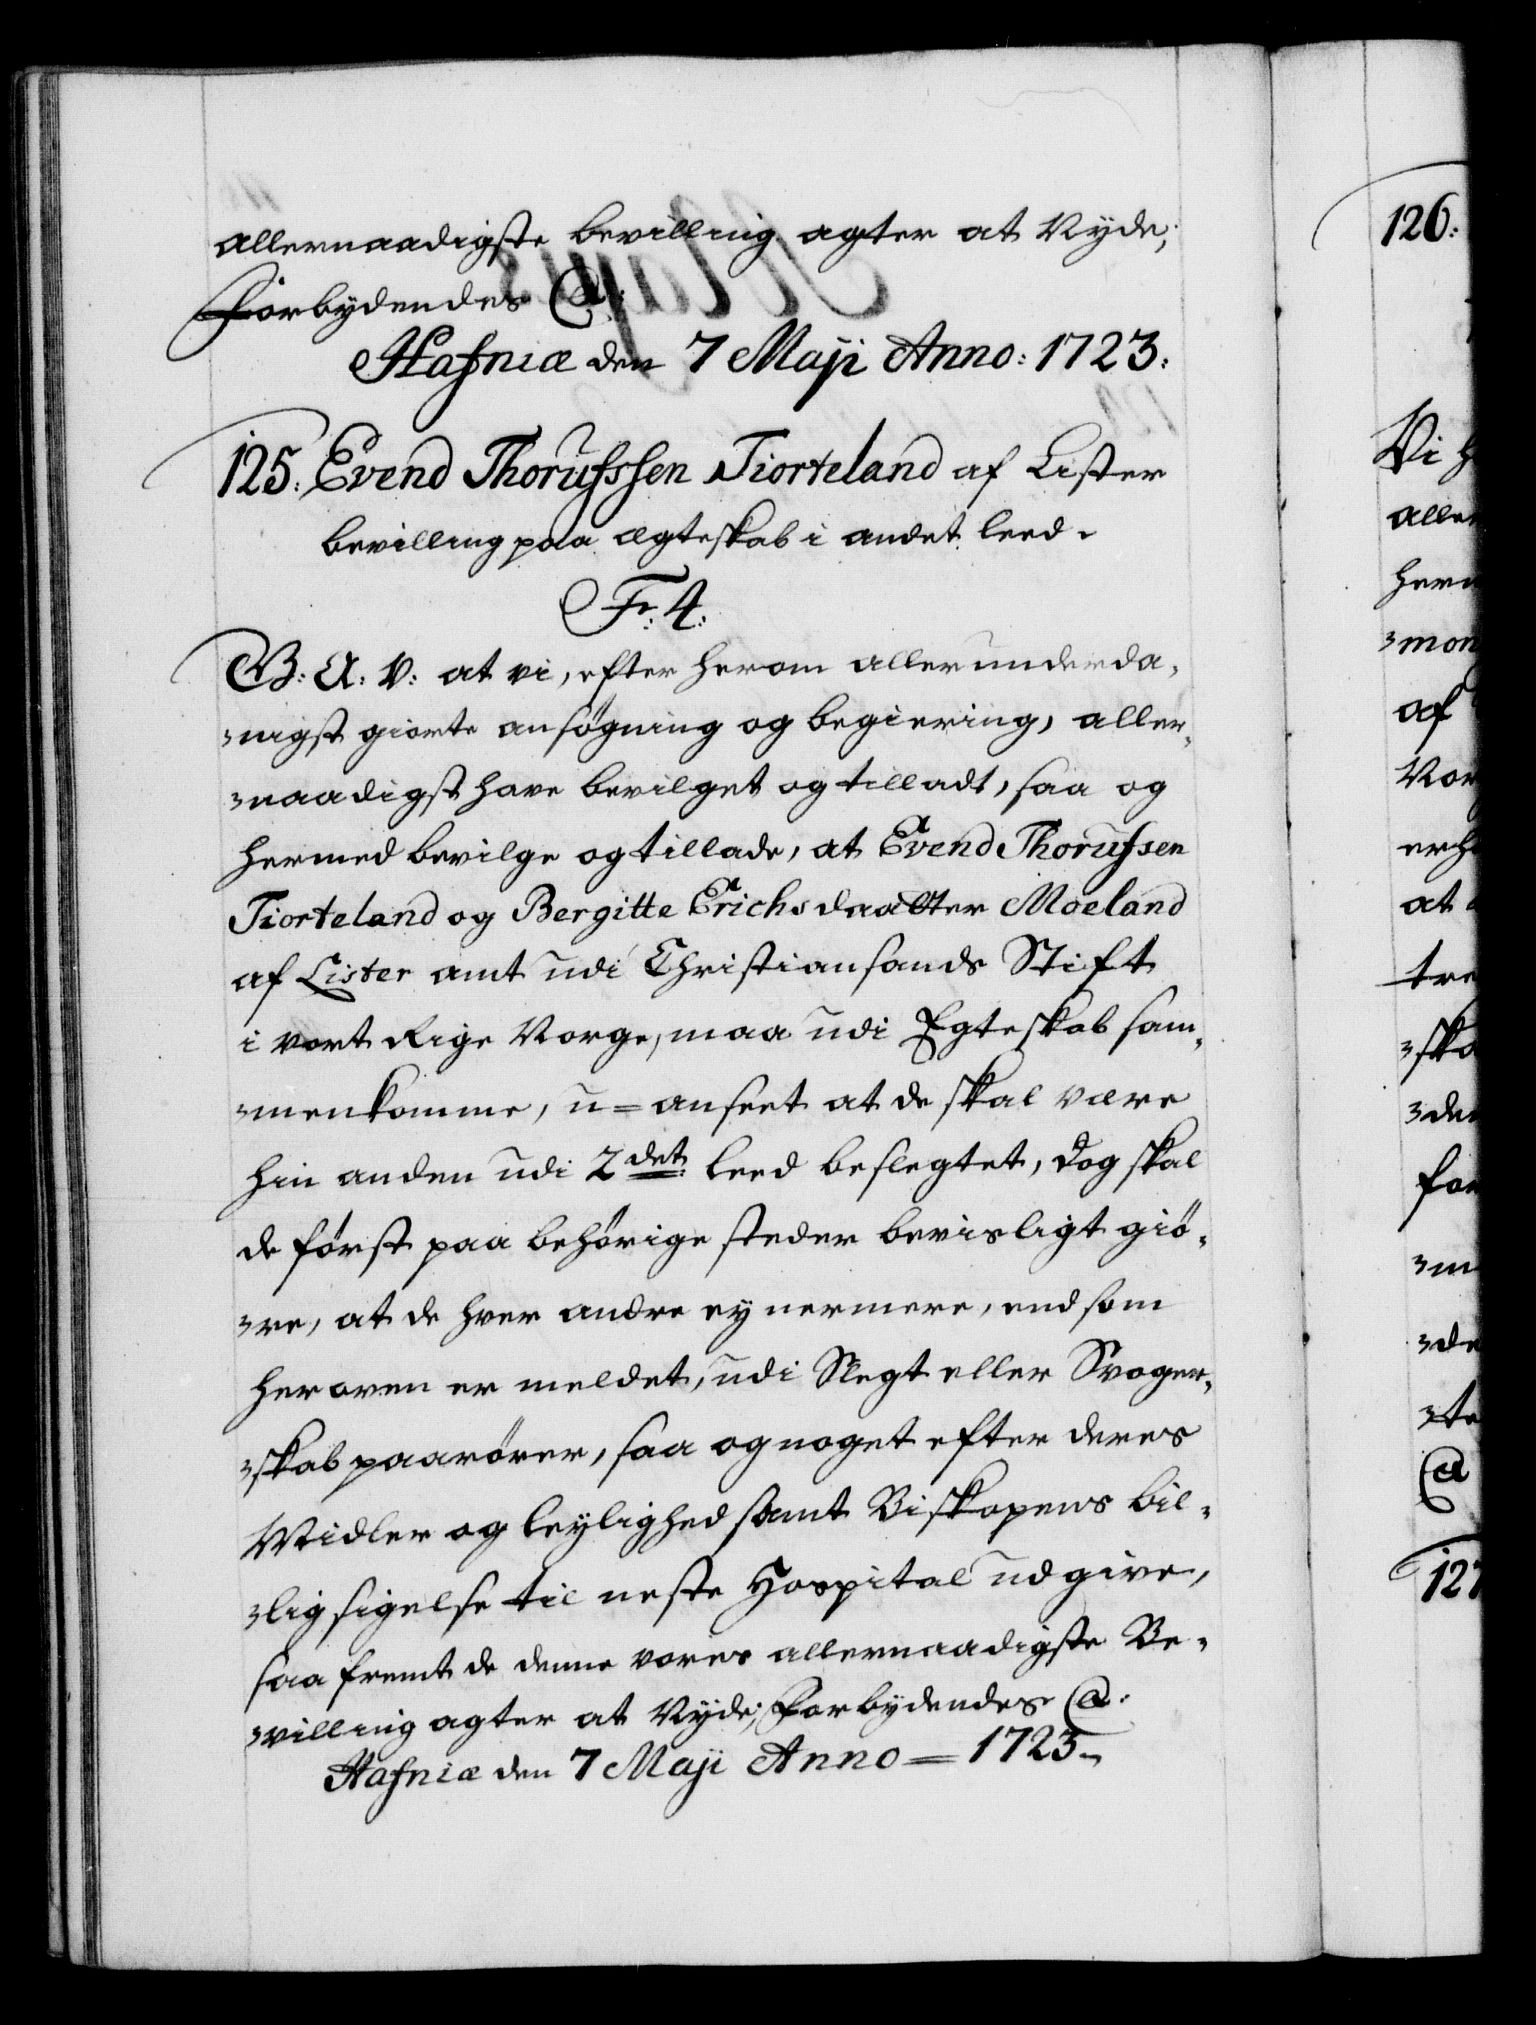 allernaadigste bevilling agter at Nyde;
Forbydendes @:
Hafniæ den 7 Maji Anno: 1723:
125: Evend Thorufssen Tiorteland af Lister
bevilling paa ægteskab i andet leed.
Fr: 4:
G: A: V: at vi, efter herom allerunderda-
-nigst giorte ansøgning og begiering, aller-
-naadigst have bevilget og tilladt, saa og
hermed bevilge og tillade, at Evend Thorufsen
Tiorteland og Bergitte Erichsdaatter Moeland
af Lister amt udi Christiansands Stift
i vort Rige Norge, maa udi Egteskab sam-
-menkomme, u=anseet at de skal være
hin anden udi 2det leed beslegtet, dog skal
de først paa behørige steder bevisligt giø-
-re, at de hver andre ey nermere, end som
heroven er meldet, udi Slegt eller Svoger-
-skab paarører, saa og noget efter deres
Midler og leylighed samt Biskopens bil-
-lig sigelse til neste Hospital udgive,
saa fremt de denne vores allernaadigste Be-
-villing agter at Nyde; Forbydendes @:
Hafniæ den 7 Maji Anno = 1723
126:
Vi h
aller
herm
-mon
af
Nor
erh
at
tre
-ska
-de
for
-m
-de
-te
@
127